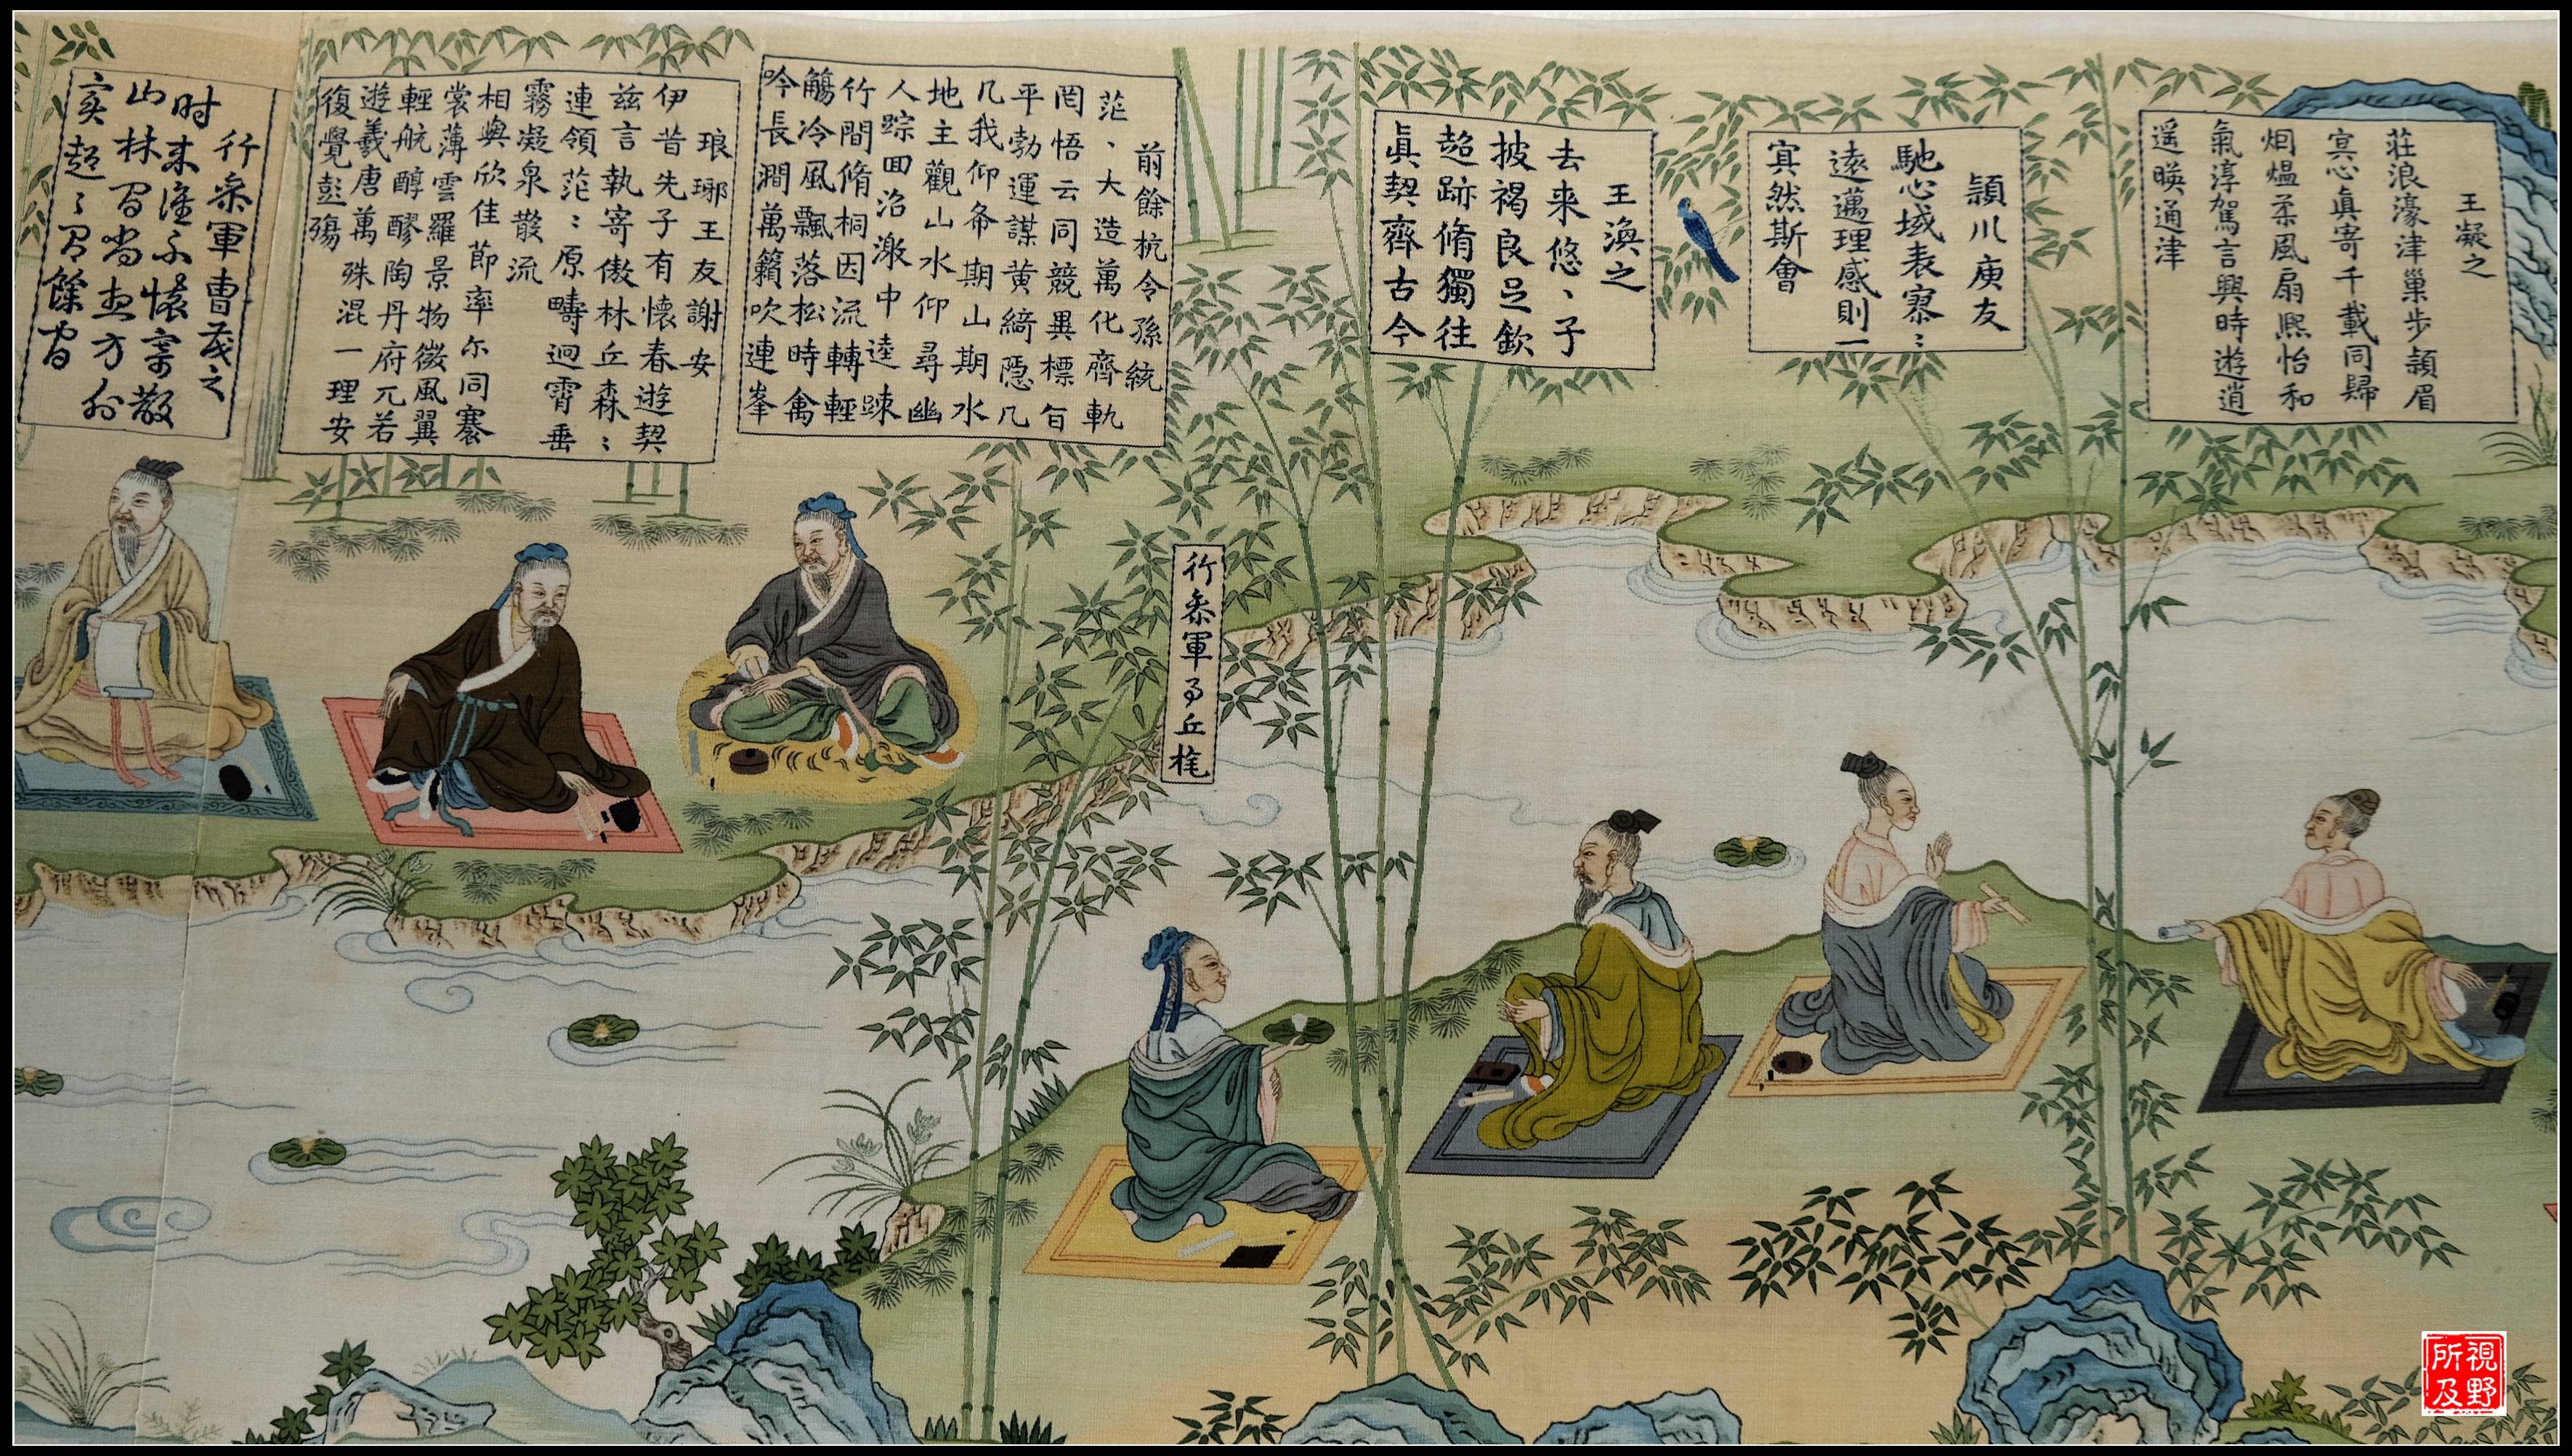 王凝之
莊浪濠津巢步潁眉
冥心真寄千載同歸
烟熅柔風扇熈怡和
氣淳駕言興時遊逍
遥暎通津
潁川庾友
馳心域表寥〻
遠邁理感則一
冥然斯會
王渙之
去来悠、子
披褐良足欽
超跡脩獨往
真契齊古今
行叅軍事丘旄
前餘杭令孫統
茫、大造萬化齊軌
罔悟云同競異標旨
平勃運謀黄綺隠几
凡我仰希期山期水
地主觀山水仰尋幽
人踪回沼激中逵疎
竹間脩桐因流轉輕
觴冷風飄落松時禽
吟長澗萬籟吹連峯
琅瑘王友謝安
伊昔先子有懷春遊契
兹言執寄傲林丘森〻
連領茫〻原疇迥霄垂
霧凝泉散流
相與欣佳節率尓同褰
裳薄雲羅景物微風翼
輕航醇醪陶丹府兀若
遊羲唐萬殊混一理安
復覺彭殤
行叅軍曹茂之
时来誰不懷寄散
山林間尚想方外
賓超〻有餘閒
視野
所及